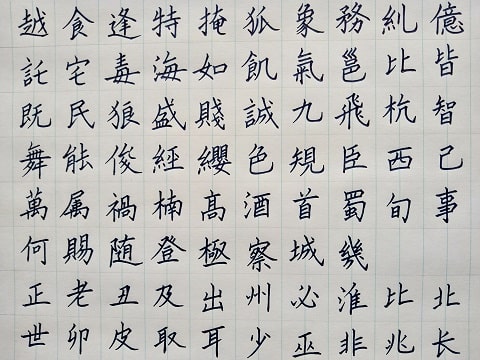 越食逢特掩狐象務糺億
託宅毒海如飢氣邕比皆
既民狼盛賤誠九飛杭智
舞能俊經纓色規臣西己
萬属禍楠高酒首蜀旬事
何賜随登極察城幾
正老丑及出州必淮比北
世卯皮取耳少巫非兆长